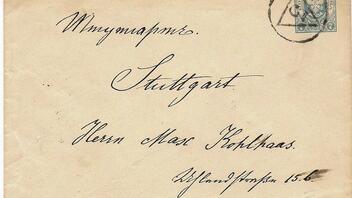 Штутгартъ.
Stuttgart
Herrn Max Kohlhaas.
Uhlandstraße 15.b.